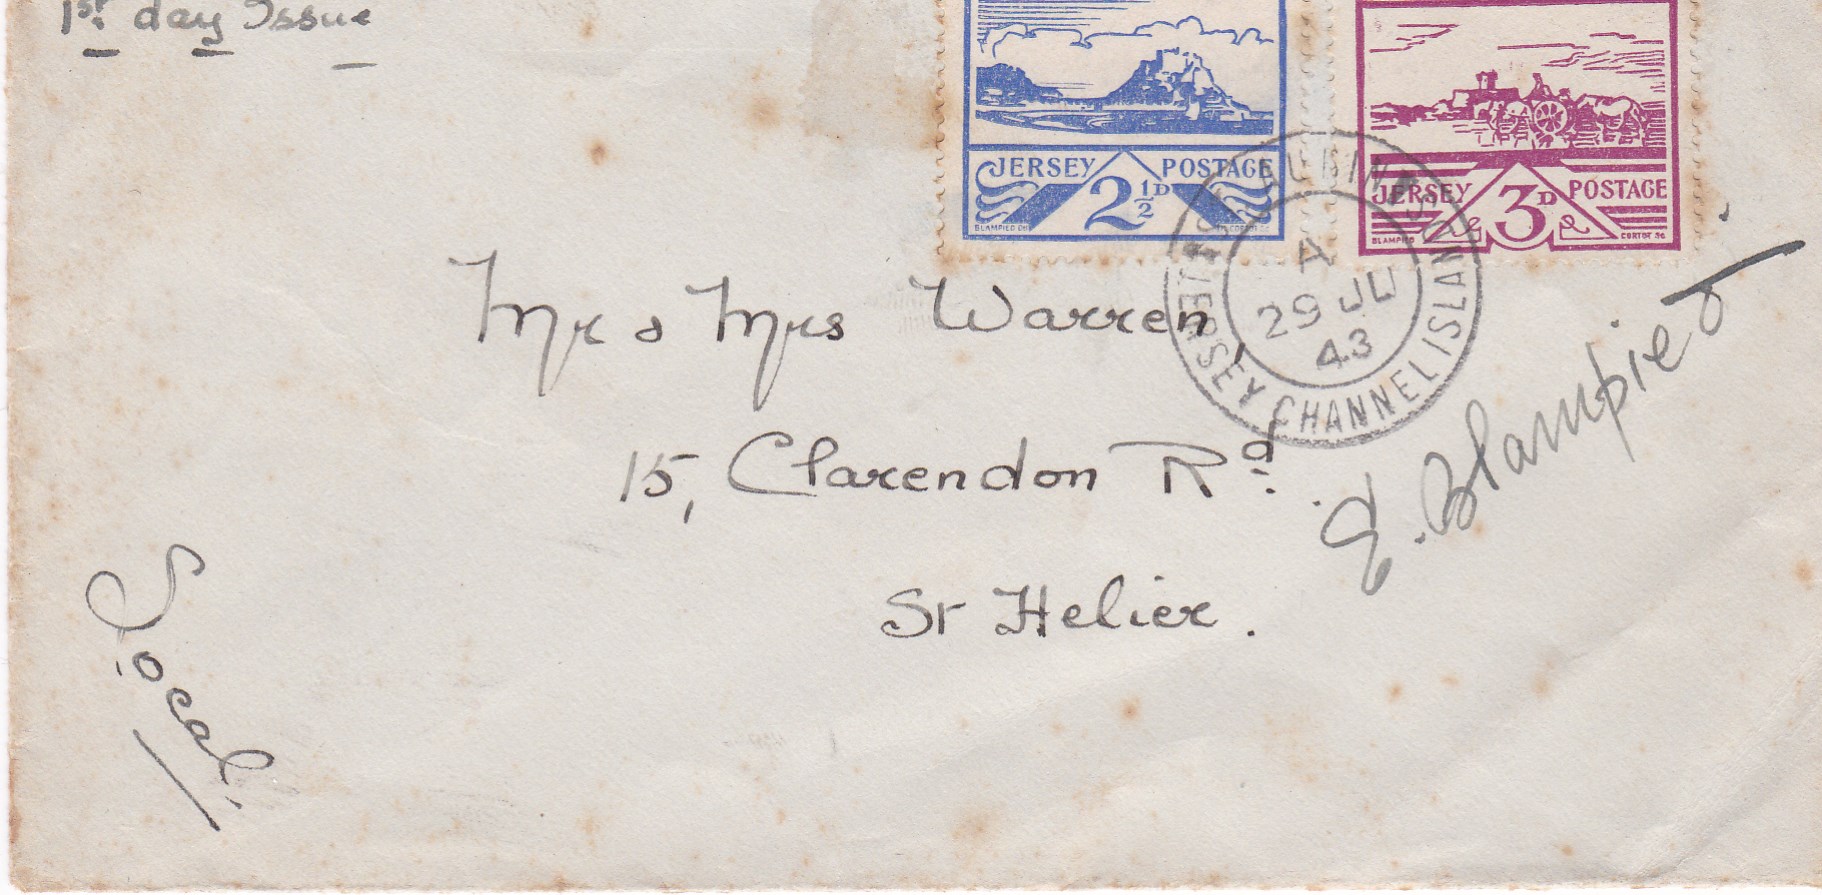 1st. day Issue
JERSEY POSTAGE
2½D
BLAMPIED
JERSEY POSTAGE
3D
BLAMPIED CORTOT SC
ST. AUBINS
JERSEY CHANNEL ISLANDS
A
29 JU
43
Mr & Mrs Warren,
15, Clarendon Rd.
St Helier.
E. Blampied
Local.